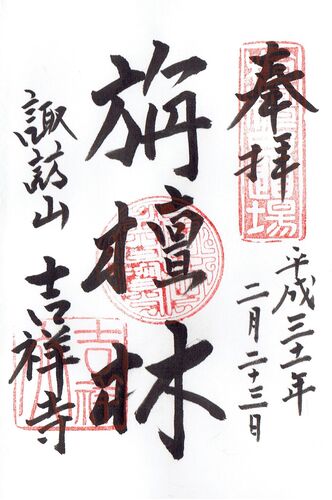 奉拝
平成三十一年
二月二十三日
旃檀林
諏訪山
吉祥寺